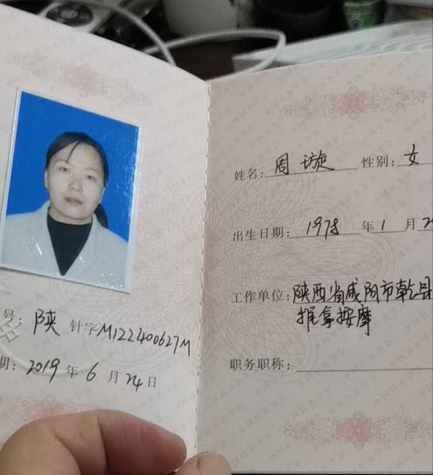 号: 陕 针字M122400627M
期: 2019 年 6 月 24 日
姓名: 周 璇 性别: 女
出生日期: 1978 年 1 月
工作单位: 陕西省咸阳市乾县
推拿按摩
职务职称: